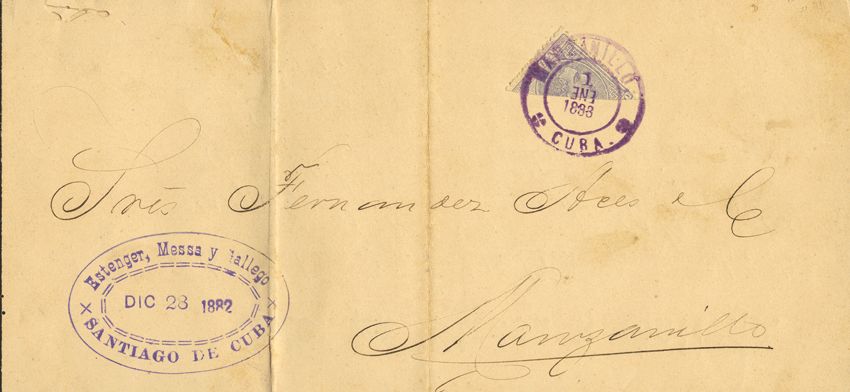 MANZANILLO
1
ENE
1883
CUBA.
Srës Fernandez Aces & C
Estenger, Messa y Gallego
DIC 28 1882
SANTIAGO DE CUBA
Manzanillo